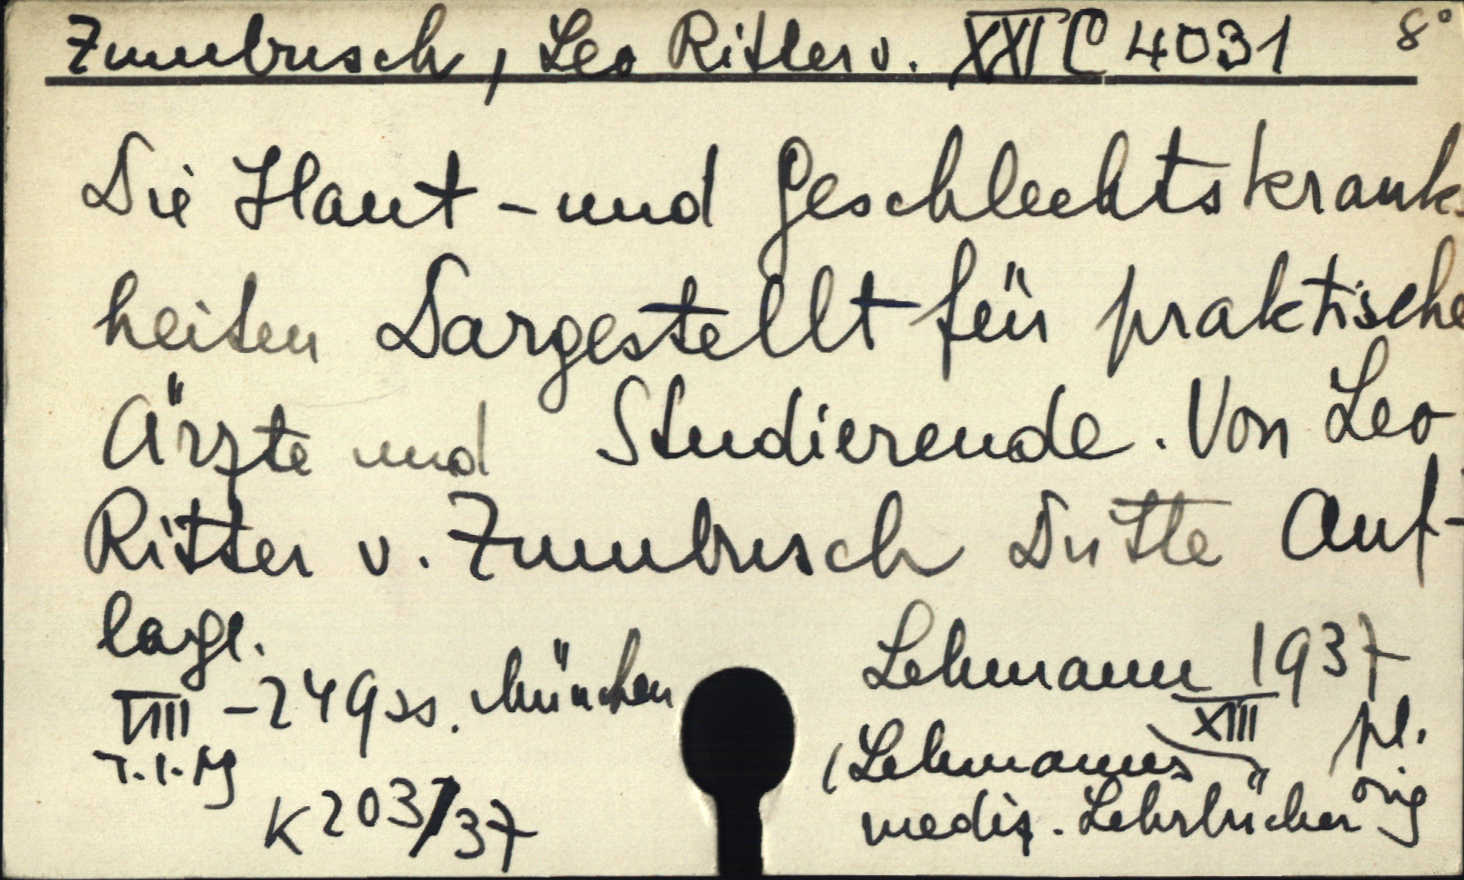 Zumbusch, Leo Ritter v. XXI C 4031 8°
Die Haut- und Geschlechtskrank-
heiten Dargestellt für praktische
Ärzte und Studierende. Von Leo
Ritter v. Zumbusch Dritte Auf-
lage.
VIII - 249 ss. München Lehmann 1937
(Lehmanns XIII pl.
mediz. Lehrbücher orig
K 203/37